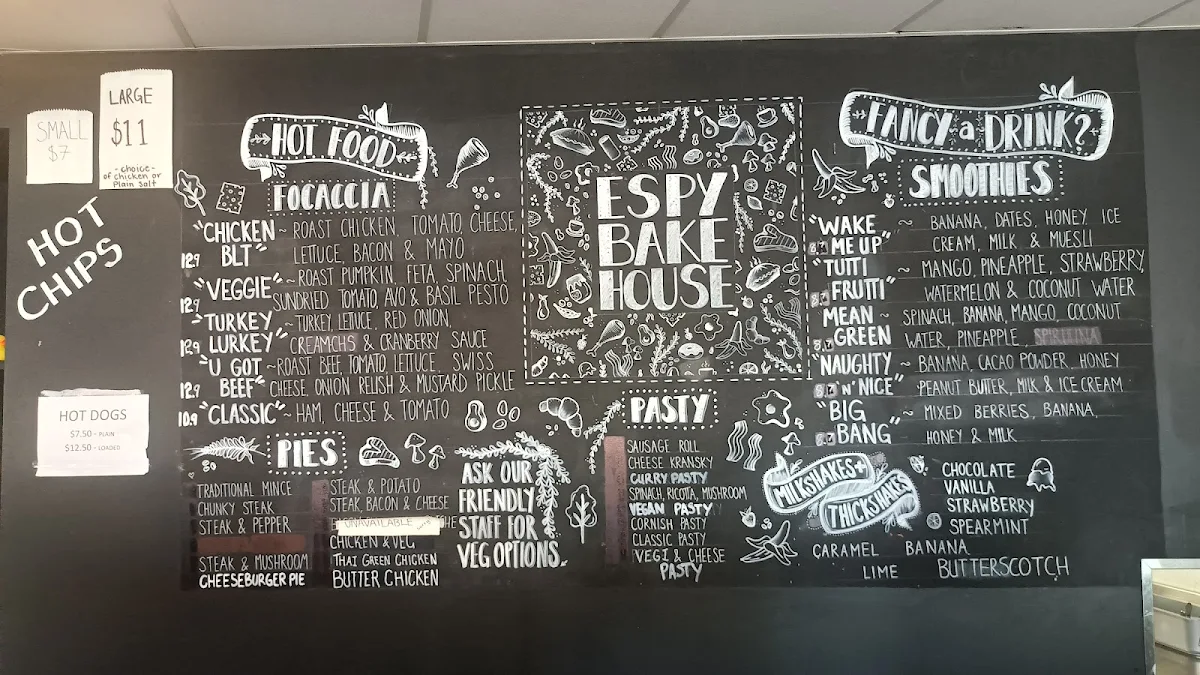 SMALL
$7
LARGE
$11
-choice-
of chicken or
Plain Salt
HOT
CHIPS
HOT DOGS
$7.50 - PLAIN
$12.50 - LOADED
HOT FOOD
FOCACCIA
"CHICKEN ~ ROAST CHICKEN TOMATO, CHEESE,
12.9 BLT" LETTUCE, BACON & MAYO
"VEGGIE" ~ ROAST PUMPKIN, FETA, SPINACH
12.9 SUNDRIED TOMATO, AVO & BASIL PESTO
"TURKEY ~ TURKEY, LETTUCE, RED ONION,
12.9 LURKEY" CREAMCHS & CRANBERRY SAUCE
"U GOT ~ ROAST BEEF, TOMATO, LETTUCE, SWISS
12.9 BEEF" CHEESE, ONION RELISH & MUSTARD PICKLE
10.9 "CLASSIC" ~ HAM, CHEESE & TOMATO
PIES
TRADITIONAL MINCE
CHUNKY STEAK
STEAK & PEPPER
STEAK & MUSHROOM
CHEESEBURGER PIE
STEAK & POTATO
STEAK, BACON & CHEESE
UNAVAILABLE
CHICKEN & VEG
THAI GREEN CHICKEN
BUTTER CHICKEN
ASK OUR
FRIENDLY
STAFF FOR
VEG OPTIONS.
ESPY
BAKE
HOUSE
PASTY
SAUSAGE ROLL
CHEESE KRANSKY
CURRY PASTY
SPINACH, RICOTTA, MUSHROOM
VEGAN PASTY
CORNISH PASTY
CLASSIC PASTY
VEGI & CHEESE
PASTY
FANCY a DRINK?
SMOOTHIES
"WAKE ~ BANANA, DATES, HONEY, ICE
ME UP" CREAM, MILK & MUESLI
"TUTTI ~ MANGO, PINEAPPLE, STRAWBERRY,
FRUTTI" WATERMELON & COCONUT WATER
MEAN ~ SPINACH, BANANA, MANGO, COCONUT
GREEN WATER, PINEAPPLE, SPIRULINA
"NAUGHTY ~ BANANA, CACAO POWDER, HONEY
'n' NICE" PEANUT BUTTER, MILK & ICE CREAM
"BIG ~ MIXED BERRIES, BANANA,
BANG HONEY & MILK
MILKSHAKES +
THICKSHAKES
CHOCOLATE
VANILLA
STRAWBERRY
SPEARMINT
CARAMEL BANANA
LIME BUTTERSCOTCH